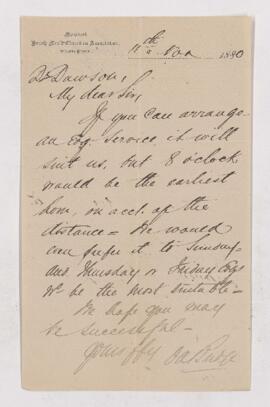 Montreal
11th Nov 1880
Dr Dawson,
My dear Sir,
If you can arrange
an Evg. Service, it will
suit us, but 8 o'clock
would be the earliest
hour, on acct. of the
distance - We would
even prefer it to Sunday
and Thursday or Friday Evgs
wd be the most suitable -
We hope you may
be successful -
Yours ffy